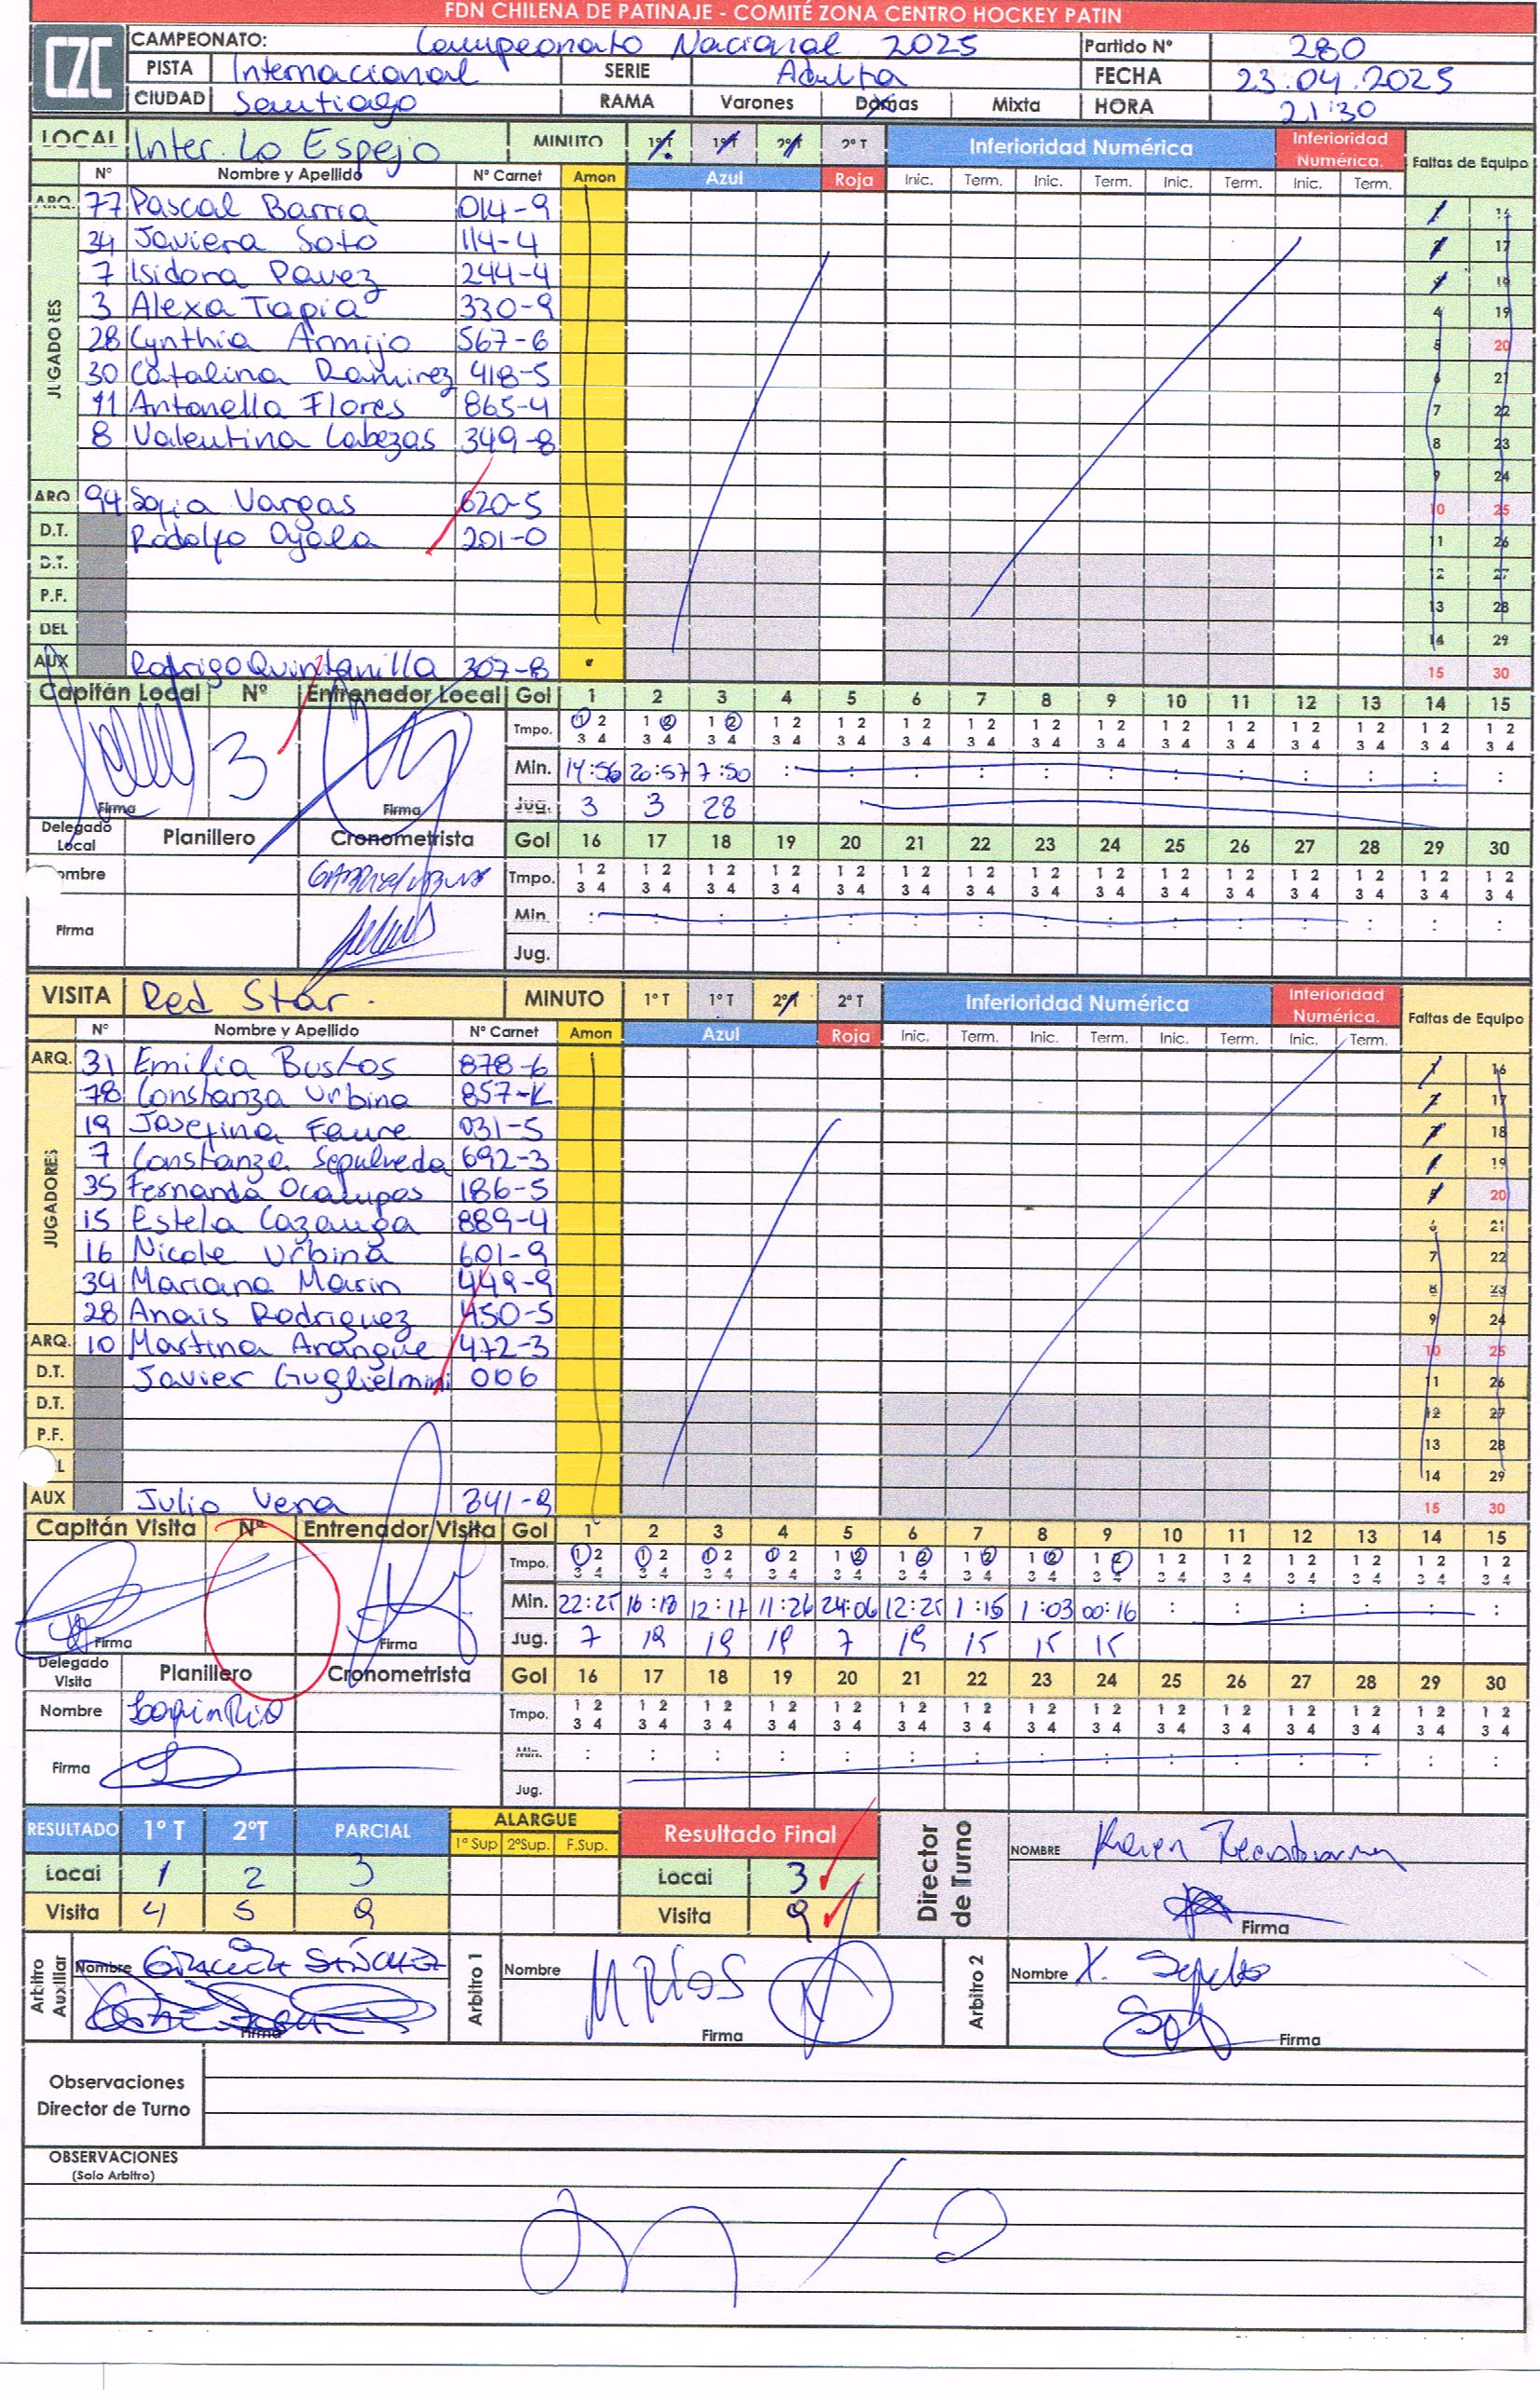 FDN CHILENA DE PATINAJE - COMITÉ ZONA CENTRO HOCKEY PATIN
CZC
CAMPEONATO: Campeonato Nacional 2025 Partido Nº 280
PISTA Internacional SERIE Adulta FECHA 23.04.2025
CIUDAD Santiago RAMA Varones Damas Mixta HORA 21:30
LOCAL Inter. Lo Espejo MINUTO 1ºT 1ºT 2ºT 2º T Inferioridad Numérica Inferioridad Numérica. Faltas de Equipo
Nº Nombre y Apellido Nº Carnet Amon Azul Roja Inic. Term. Inic. Term. Inic. Term. Inic. Term.
ARQ. 77 Pascal Barria 014-9 1 16
JUGADORES
34 Javiera Soto 114-4 2 17
7 Isidora Pavez 244-4 3 18
3 Alexa Tapia 330-9 4 19
28 Cynthia Armijo 567-6 5 20
30 Catalina Ramirez 418-5 6 21
11 Antonella Flores 865-4 7 22
8 Valentina Cabezas 349-8 8 23
9 24
ARQ 94 Sofia Vargas 620-5 10 25
D.T. Rodolfo Ayala 201-0 11 26
D.T. 12 27
P.F. 13 28
DEL 14 29
AUX Rodrigo Quintanilla 307-8 15 30
Capitán Local Nº Entrenador Local Gol 1 2 3 4 5 6 7 8 9 10 11 12 13 14 15
Tmpo. 1 2 1 2 1 2 1 2 1 2 1 2 1 2 1 2 1 2 1 2 1 2 1 2 1 2 1 2 1 2
3 4 3 4 3 4 3 4 3 4 3 4 3 4 3 4 3 4 3 4 3 4 3 4 3 4 3 4 3 4
3 Min. 14:56 20:57 7:50 : : : : : : : : : : : :
Firma Firma Jug. 3 3 28
Delegado Local Planillero Cronometrista Gol 16 17 18 19 20 21 22 23 24 25 26 27 28 29 30
Nombre Tmpo. 1 2 1 2 1 2 1 2 1 2 1 2 1 2 1 2 1 2 1 2 1 2 1 2 1 2 1 2 1 2
3 4 3 4 3 4 3 4 3 4 3 4 3 4 3 4 3 4 3 4 3 4 3 4 3 4 3 4 3 4
Firma Min. : : : : : : : : : : : : : : :
Jug.
VISITA Red Star. MINUTO 1º T 1º T 2ºT 2º T Inferioridad Numérica Inferioridad Numérica. Faltas de Equipo
Nº Nombre y Apellido Nº Carnet Amon Azul Roja Inic. Term. Inic. Term. Inic. Term. Inic. Term.
ARQ. 31 Emilia Bustos 878-6 1 16
JUGADORES
78 Constanza Urbina 857-K 2 17
19 Josefina Faure 031-5 3 18
7 Constanza Sepulveda 692-3 4 19
35 Fernanda Ocampos 186-5 5 20
15 Estela Cazanga 889-4 6 21
16 Nicole Urbina 601-9 7 22
34 Mariana Marin 449-9 8 23
28 Anais Rodriguez 450-5 9 24
ARQ. 10 Martina Arangue 472-3 10 25
D.T. Javier Guglielmini 006 11 26
D.T. 12 27
P.F. 13 28
L 14 29
AUX Julio Vera 341-9 15 30
Capitán Visita Nº Entrenador Visita Gol 1 2 3 4 5 6 7 8 9 10 11 12 13 14 15
Tmpo. 1 2 1 2 1 2 1 2 1 2 1 2 1 2 1 2 1 2 1 2 1 2 1 2 1 2 1 2 1 2
3 4 3 4 3 4 3 4 3 4 3 4 3 4 3 4 3 4 3 4 3 4 3 4 3 4 3 4 3 4
Min. 22:25 16:18 12:17 11:26 24:06 12:25 1:15 1:03 00:16 : : : : : :
Firma Firma Jug. 7 19 19 19 7 15 15 15 15
Delegado Visita Planillero Cronometrista Gol 16 17 18 19 20 21 22 23 24 25 26 27 28 29 30
Nombre Tmpo. 1 2 1 2 1 2 1 2 1 2 1 2 1 2 1 2 1 2 1 2 1 2 1 2 1 2 1 2 1 2
3 4 3 4 3 4 3 4 3 4 3 4 3 4 3 4 3 4 3 4 3 4 3 4 3 4 3 4 3 4
Firma Min. : : : : : : : : : : : : : : :
Jug.
RESULTADO 1º T 2ºT PARCIAL ALARGUE Resultado Final Director de Turno NOMBRE Karen
1º Sup 2ºSup. F.Sup.
Local 1 2 3 Local 3
Visita 4 5 9 Visita 9 Firma
Arbitro Auxiliar Nombre SÁNCHEZ Firma Arbitro 1 Nombre M RÍOS Firma Arbitro 2 Nombre X. Firma
Observaciones
Director de Turno
OBSERVACIONES
(Solo Arbitro)